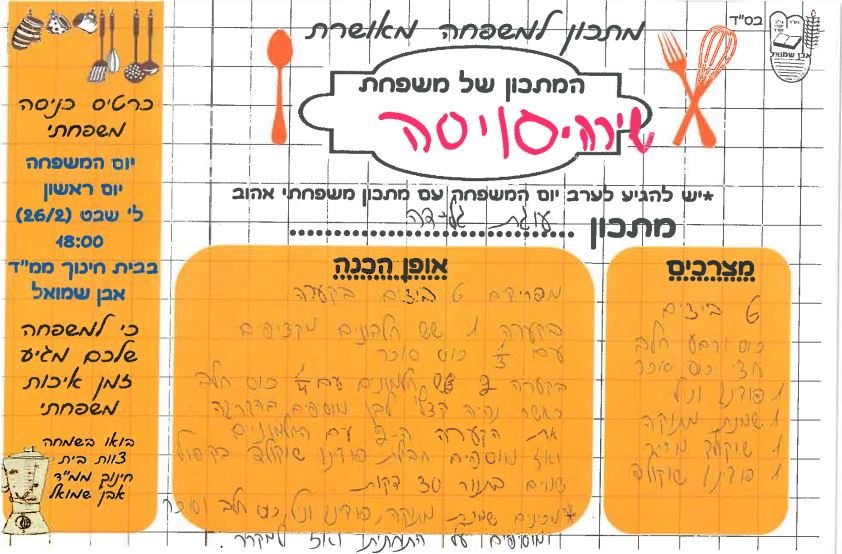 בס"ד
אבן שמואל
מתכון למשפחה מאושרת
המתכון של משפחת
שירה סויסה
*יש להגיע לערב יום המשפחה עם מתכון משפחתי אהוב
מתכון עוגת גלידה
כרטיס כניסה
משפחתי
יום המשפחה
יום ראשון
ל' שבט (26/2)
18:00
בבית חינוך ממ"ד
אבן שמואל
כי למשפחה
שלכם מגיע
זמן איכות
משפחתי
בואו בשמחה
צוות בית
חינוך ממ"ד
אבן שמואל
מצרכים
6 ביצים
כוס ורבע חלב
חצי כוס סוכר
1 פודינג וניל
1 שמנת מתוקה
1 שוקולד מריר
1 פודינג שוקולד
אופן הכנה
מפרידים 6 ביצים בקערה
בקערה 1 שש חלבונים מקציפים
עם כוס סוכר
בקערה 2 שש חלמונים עם 1/4 כוס חלב
כאשר נהיה קצף לבן מוסיפים בהדרגה
את הקערה עם החלמונים
ואז מוסיפים חבילת פודינג שוקולד בקיפול
שמים בתנור 30 דקות
*מכינים שמנת מתוקה, פודינג וניל, כוס חלב וסוכר
ומוסיפים על התחתית ואז למקרר.